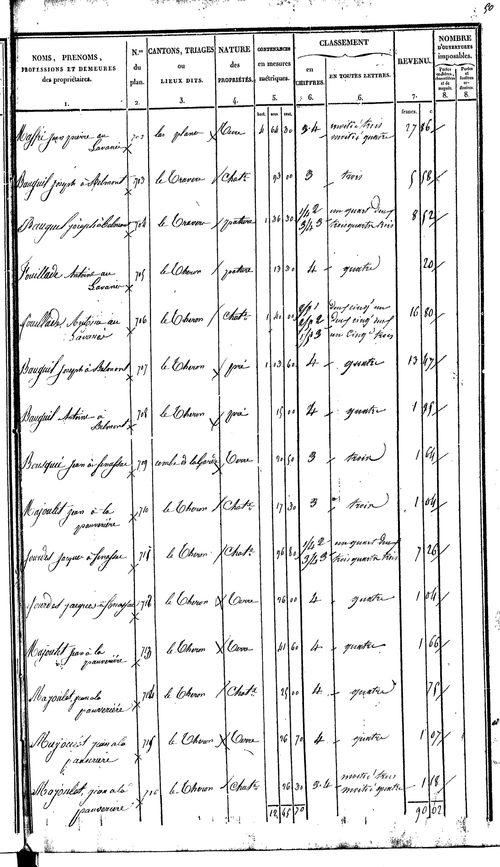 50
NOMS, PRENOMS,
PROFESSIONS ET DEMEURES
des propriétaires.
1.
N.os
du
plan.
2.
CANTONS, TRIAGES
ou
LIEUX DITS.
3.
NATURE
des
PROPRIÉTÉS.
4.
CONTENANCES
en mesures
métriques.
5.
CLASSEMENT
en
CHIFFRES.
6.
EN TOUTES LETTRES.
6.
REVENU.
7.
NOMBRE
D'OUVERTURES
imposables.
8.
8.
hect. ares cent.
francs. c
au 702 las planes Terre 4 64 30 3.4 moitié trois 27 86
moitié quatre
Bouquil joseph à Belmont 703 le Travers Chat.e 93 00 3 trois 5 58
Bouquil joseph à Belmont 704 le Travers pature 1 36 30 1/4 2 un quart deux 8 52
3/4 3 trois quarts trois
Fouillade Antoine au 705 le Theron pature 13 30 4 quatre 20
Fouillade Antoine au 706 le Theron Chat.e 1 40 00 2/5 1 deux cinq.e un 16 80
2/5 2 deux cinq.e deux
1/5 3 un cinq.e trois
Bouquil joseph à Belmont 707 le Theron pré 1 03 60 4 quatre 13 47
Bouquil Antoine à 708 le Theron pré 15 00 4 quatre 1 95
Belmont
jean à 709 combe de Terre 20 50 3 trois 1 64
Majoulet jean à la 710 le Theron Chat.e 17 30 3 trois 1 04
pauverière
jourdes jacques à 711 le Theron Chat.e 96 80 1/4 2 un quart deux 7 26
3/4 3 trois quarts trois
jourdes jacques à 712 le Theron Terre 26 00 4 quatre 1 04
Majoulet jean à la 713 le Theron Terre 41 60 4 quatre 1 66
pauverière
Majoulet jean à la 714 le Theron Chat.e 25 00 4 quatre 75
pauverière
Majoulet jean à la 715 le Theron Terre 26 70 4 quatre 1 07
pauverière
Majoulet jean à la 716 le Theron Chat.e 26 30 3.4 moitié trois 1 18
pauverière moitié quatre
12 45 70 90 02